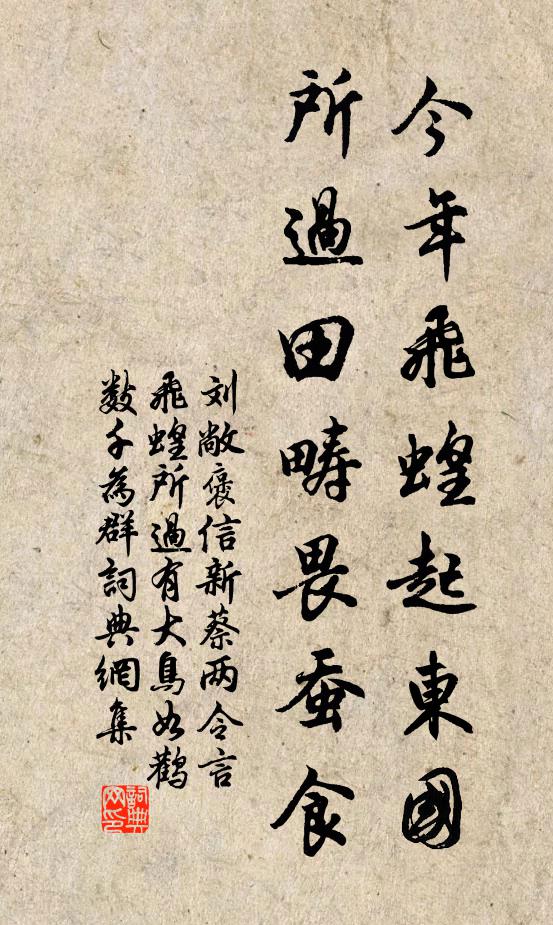 今年飛蝗起東國
所過田疇畏蚕食
刘敞褒信新蔡两令言
飛蝗所過有大鳥如鸛
数千為群詞典網集
詞典
网印